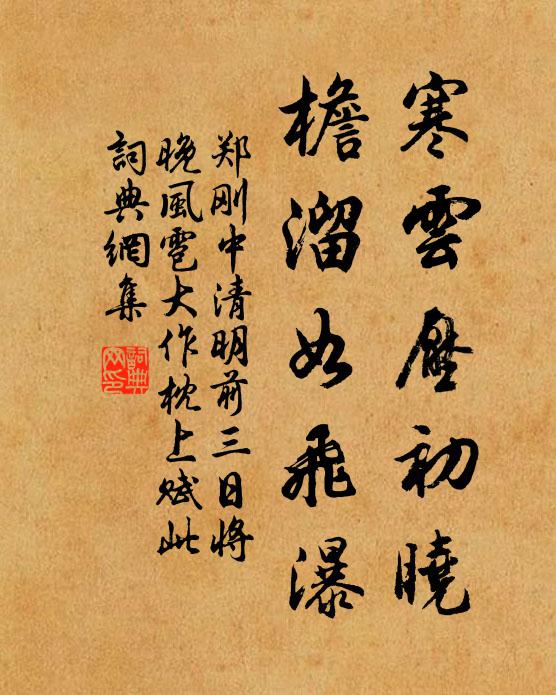 寒雲壓初曉
檐溜如飛瀑
郑刚中清明前三日将
晚風雹大作枕上赋此
詞典網集
詞典网印